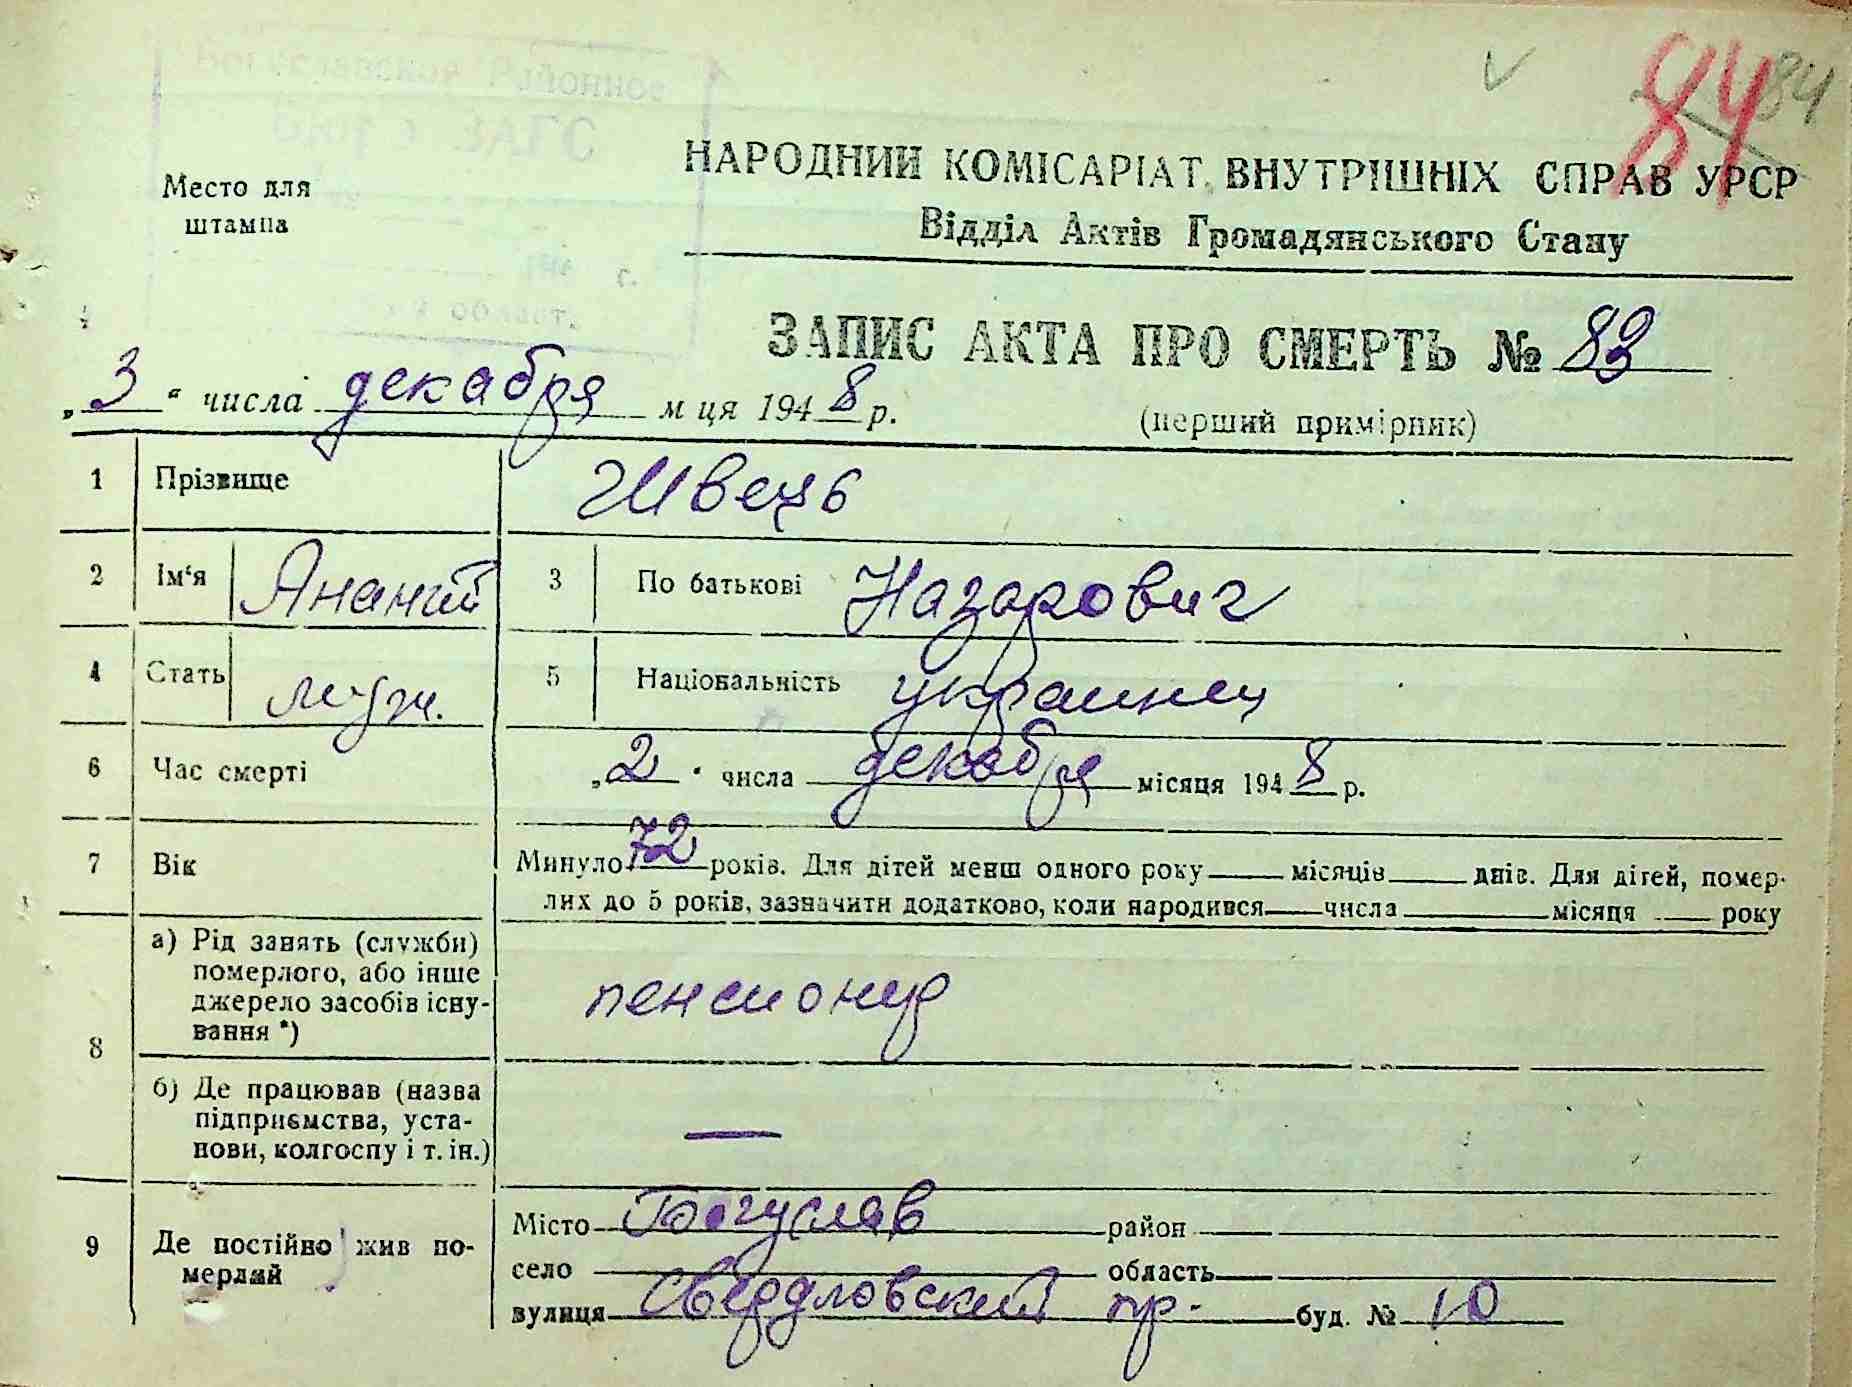 84 84
Место для
штампа
НАРОДНИЙ КОМІСАРІАТ ВНУТРІШНІХ СПРАВ УРСР
Відділ Актів Громадянського Стану
ЗАПИС АКТА ПРО СМЕРТЬ № 83
„3“ числа декабря м ця 1948 р.
(перший примірник)
1 Прізвище Швець
2 Ім‘я Ананий 3 По батькові Назарович
4 Стать муж. 5 Національність украинец
6 Час смерті „2“ числа декабря місяця 1948 р.
7 Вік Минуло 72 років. Для дітей менш одного року місяців днів. Для дітей, помер-
лих до 5 років, зазначити додатково, коли народився числа місяця року
8 а) Рід занять (служби)
померлого, або інше
джерело засобів існу-
вання *)
пенсионер
б) Де працював (назва
підприємства, уста-
нови, колгоспу і т. ін.)
—
9 Де постійно жив по-
мерлий
Місто Богуслав район
село область
вулиця Свердловский пр. буд. № 10